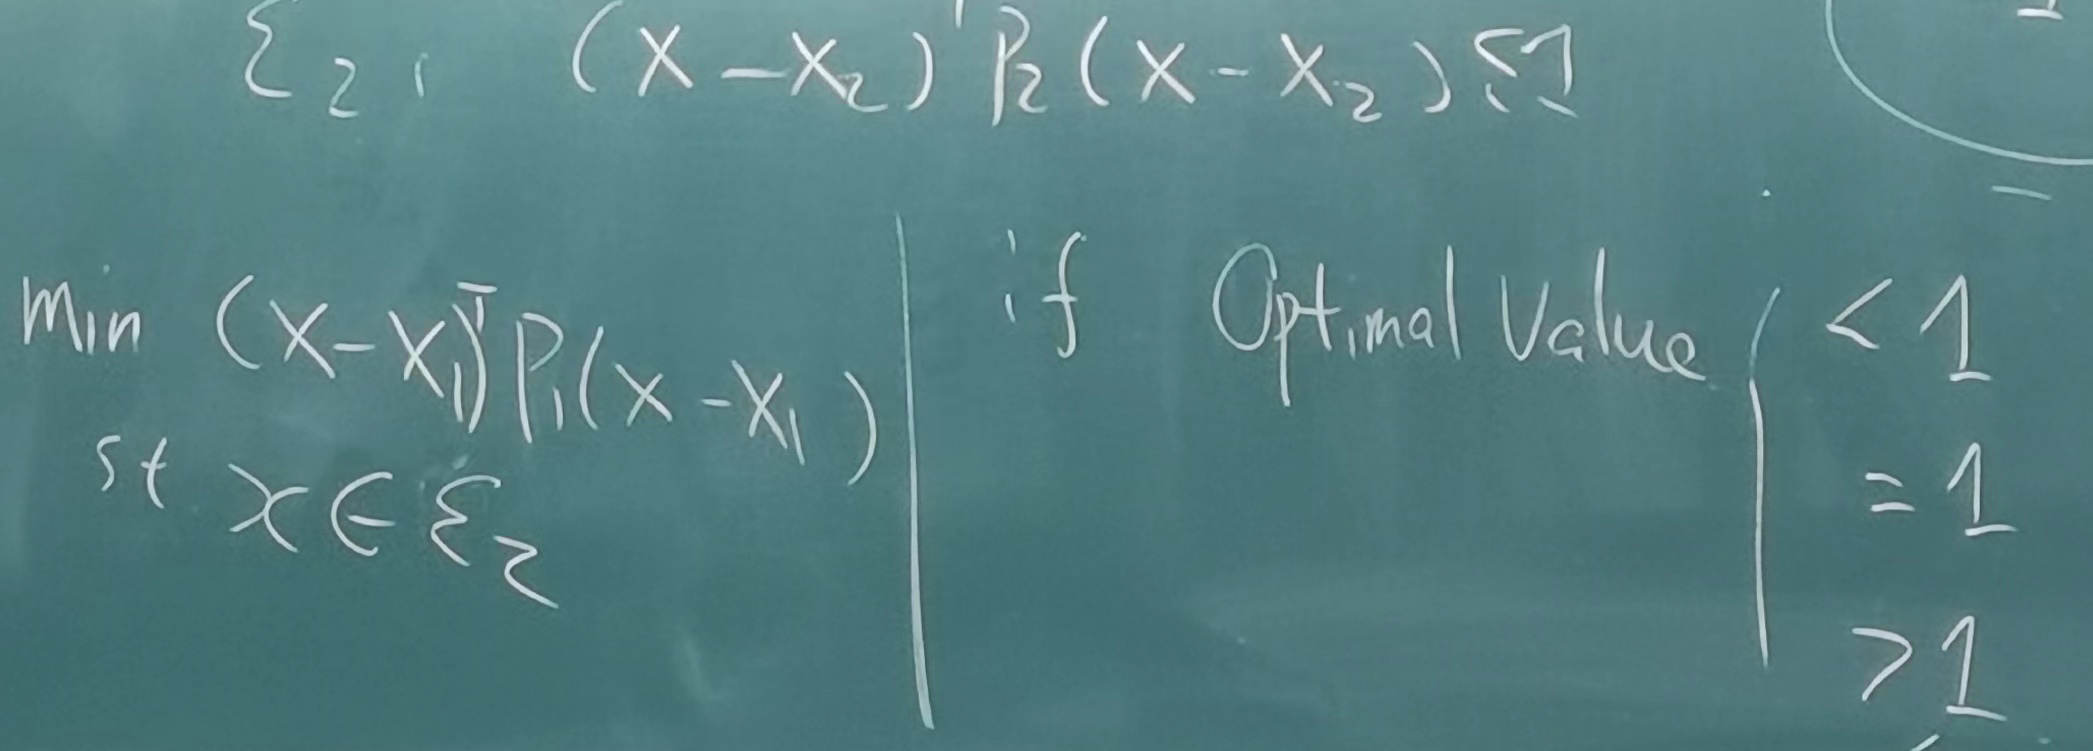 ℰ₂, (x-x₂)ᵀP₂(x-x₂) ≤ 1
Min (x-x₁)ᵀP₁(x-x₁)
st x∈ℰ₂
if Optimal Value
< 1
= 1
> 1